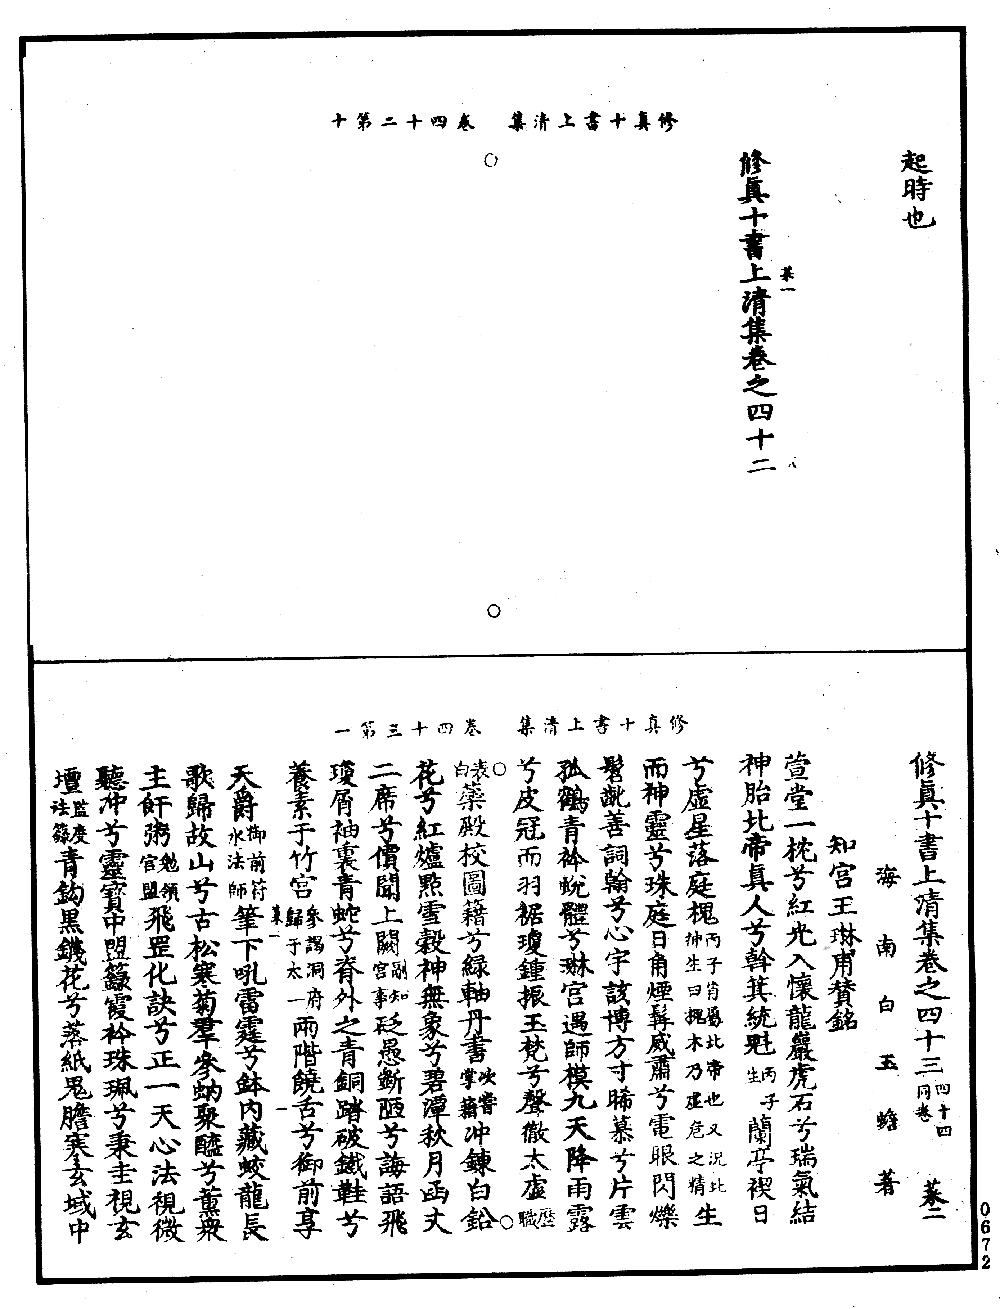 修真十書上清集　卷四十二第十
起時也
修眞十書上清集卷之四十二
菜一
修真十書上清集　卷四十三第一
修眞十書上清集卷之四十三 四十四同卷 菜二
海南白玉蟾著
知宮王琳甫贊銘
萱堂一枕兮紅光入懷龍巖虎石兮瑞氣結
神胎北帝眞人兮斡箕統魁 丙子生 蘭亭禊日
兮虛星落庭槐 丙子肖屬北帝也又況比坤生曰槐木乃虛危之精 生
而神靈兮珠庭日角煙髯威肅兮電眼閃爍
髫齔善詞翰兮心宇該博方寸晞慕兮片雲
孤鶴青衿蛻體兮琳宮遇師模九天降雨露
兮皮冠而羽裾瓊鍾振玉梵兮聲徹太虛 歷職
表白 藥殿校圖籍兮綠軸丹書 次嘗掌籍 冲鍊白鉛
花兮紅爐點雪穀神無象兮碧潭秋月函丈
二席兮價聞上闕 副知宮事 砭愚斷陋兮誨語飛
瓊屑袖裏青蛇兮脊外之青銅踏破鐵鞋兮
養素于竹宮 參謁洞府歸于太一 兩階饒舌兮御前享
菜一
天爵 御前符水法師 筆下吼雷霆兮鉢內藏蛟龍長
歌歸故山兮古松寒菊羣參蚋聚醯兮薰衆
主飦粥 勉領官盟 飛罡化訣兮正一天心法視微
聽冲兮靈寶中盟籙霞衿珠珮兮秉圭視玄
壇 監度法籙 青鈎黑鐖花兮落紙鬼膽寒玄域中
0672